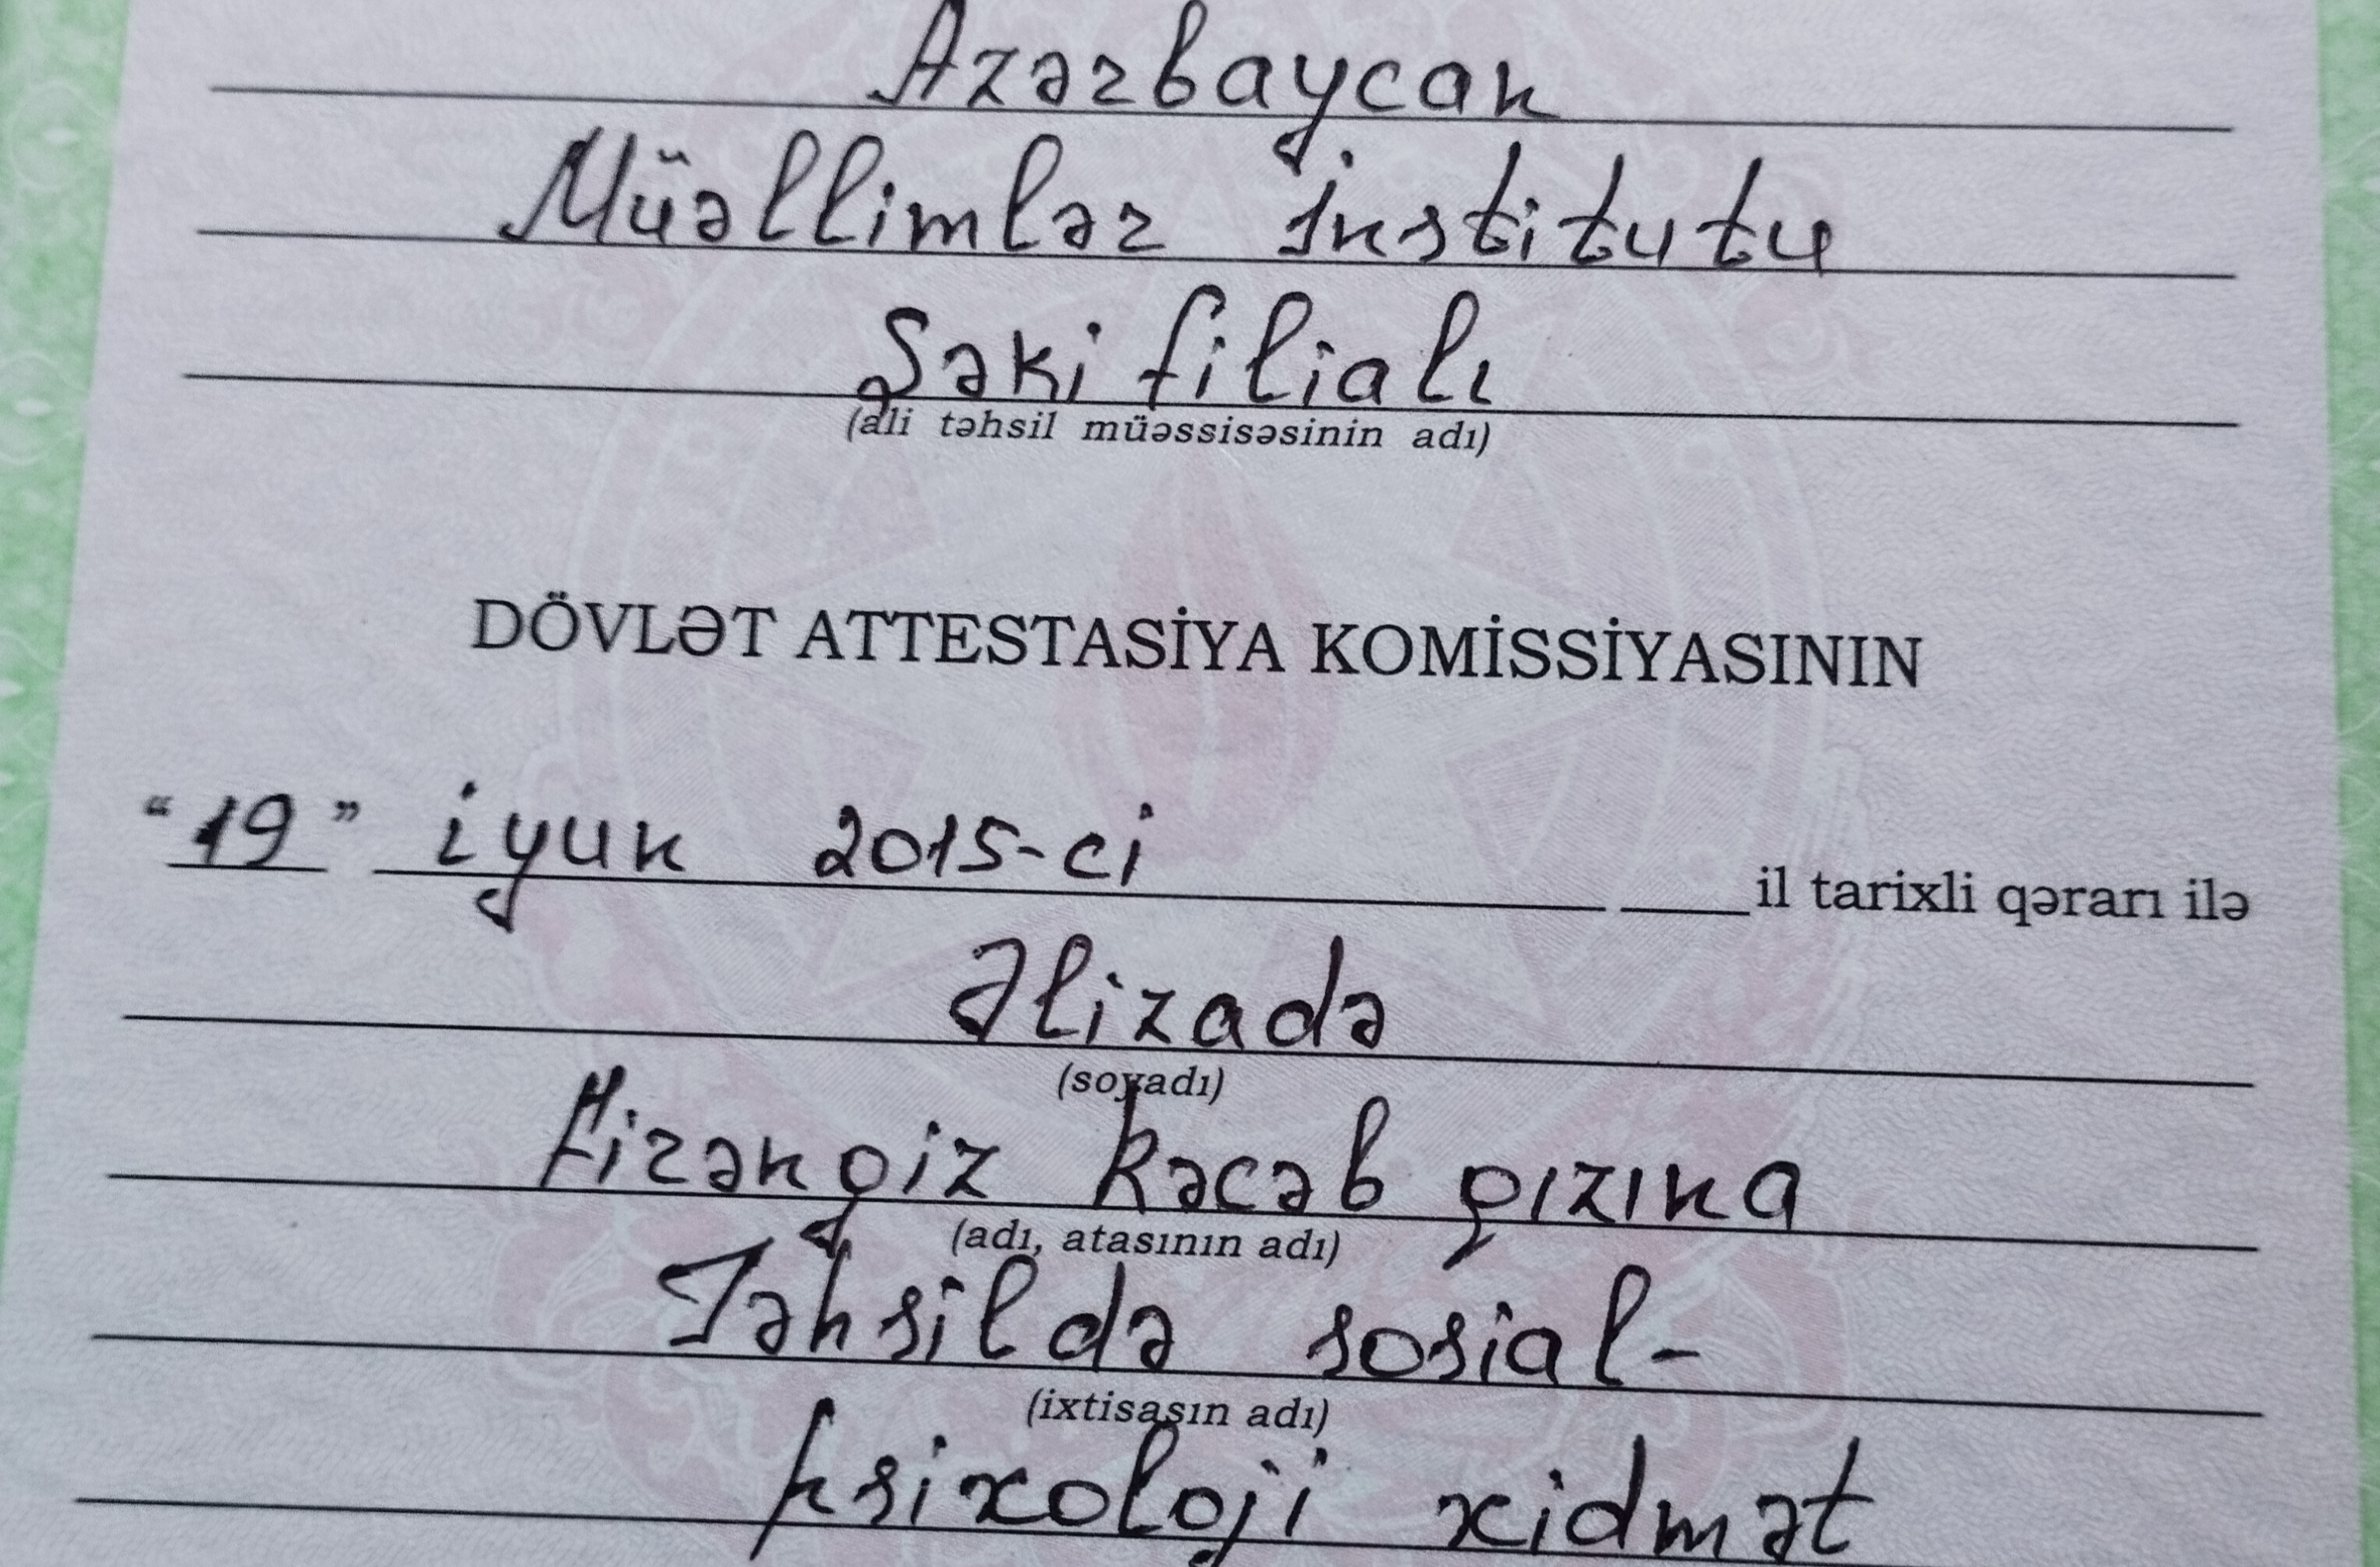 Azərbaycan
Müəllimlər İnstitutu
Şəki filialı
(ali təhsil müəssisəsinin adı)
DÖVLƏT ATTESTASİYA KOMİSSİYASININ
“19” iyun 2015-ci il tarixli qərarı ilə
Əlizadə
(soyadı)
Firəngiz Rəcəb qızına
(adı, atasının adı)
Təhsildə sosial-
(ixtisasın adı)
psixoloji xidmət